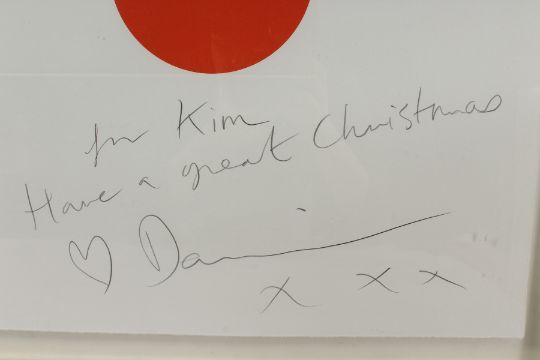 for Kim
Have a great Christmas
♡ Damien
x x x